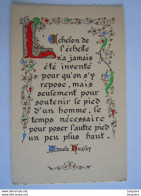 L'échelon de
l'échelle
n'a jamais
été inventé
pour qu'on s'y
repose, mais
seulement pour
soutenir le pied
d'un homme, le
temps nécessaire
pour poser l'autre pied
un peu plus haut.
Huxley